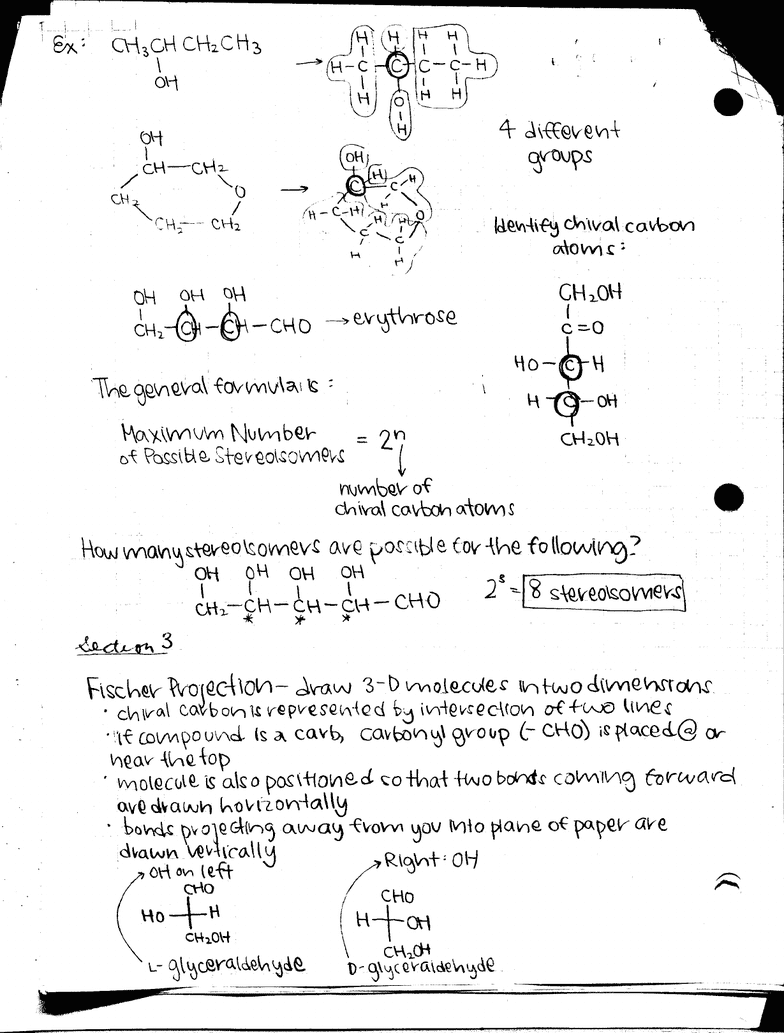 Ex: CH3CH CH2CH3
OH
→
H H H H
H-C-C-C-C-H
H H H
O
H
4 different
groups
OH
CH—CH2
CH2 O
CH2 — CH2
→
OH
C H C H
H-C-H H H O
C C
H H
Identify chiral carbon
atoms:
CH2OH
C=O
HO-C-H
H-C-OH
CH2OH
OH OH OH
CH2-CH-CH-CHO → erythrose
The general formula is:
Maximum Number
of Possible Stereoisomers = 2^n
number of
chiral carbon atoms
How many stereoisomers are possible for the following?
OH OH OH OH
CH2-CH-CH-CH-CHO
* * *
2^3 = 8 stereoisomers
Section 3
Fischer Projection- draw 3-D molecules in two dimensions
· chiral carbon is represented by intersection of two lines
· if compound is a carb, carbonyl group (-CHO) is placed @ or
near the top
· molecule is also positioned so that two bonds coming forward
are drawn horizontally
· bonds projecting away from you into plane of paper are
drawn vertically
OH on left
CHO
HO H
CH2OH
L-glyceraldehyde
Right: OH
CHO
H OH
CH2OH
D-glyceraldehyde